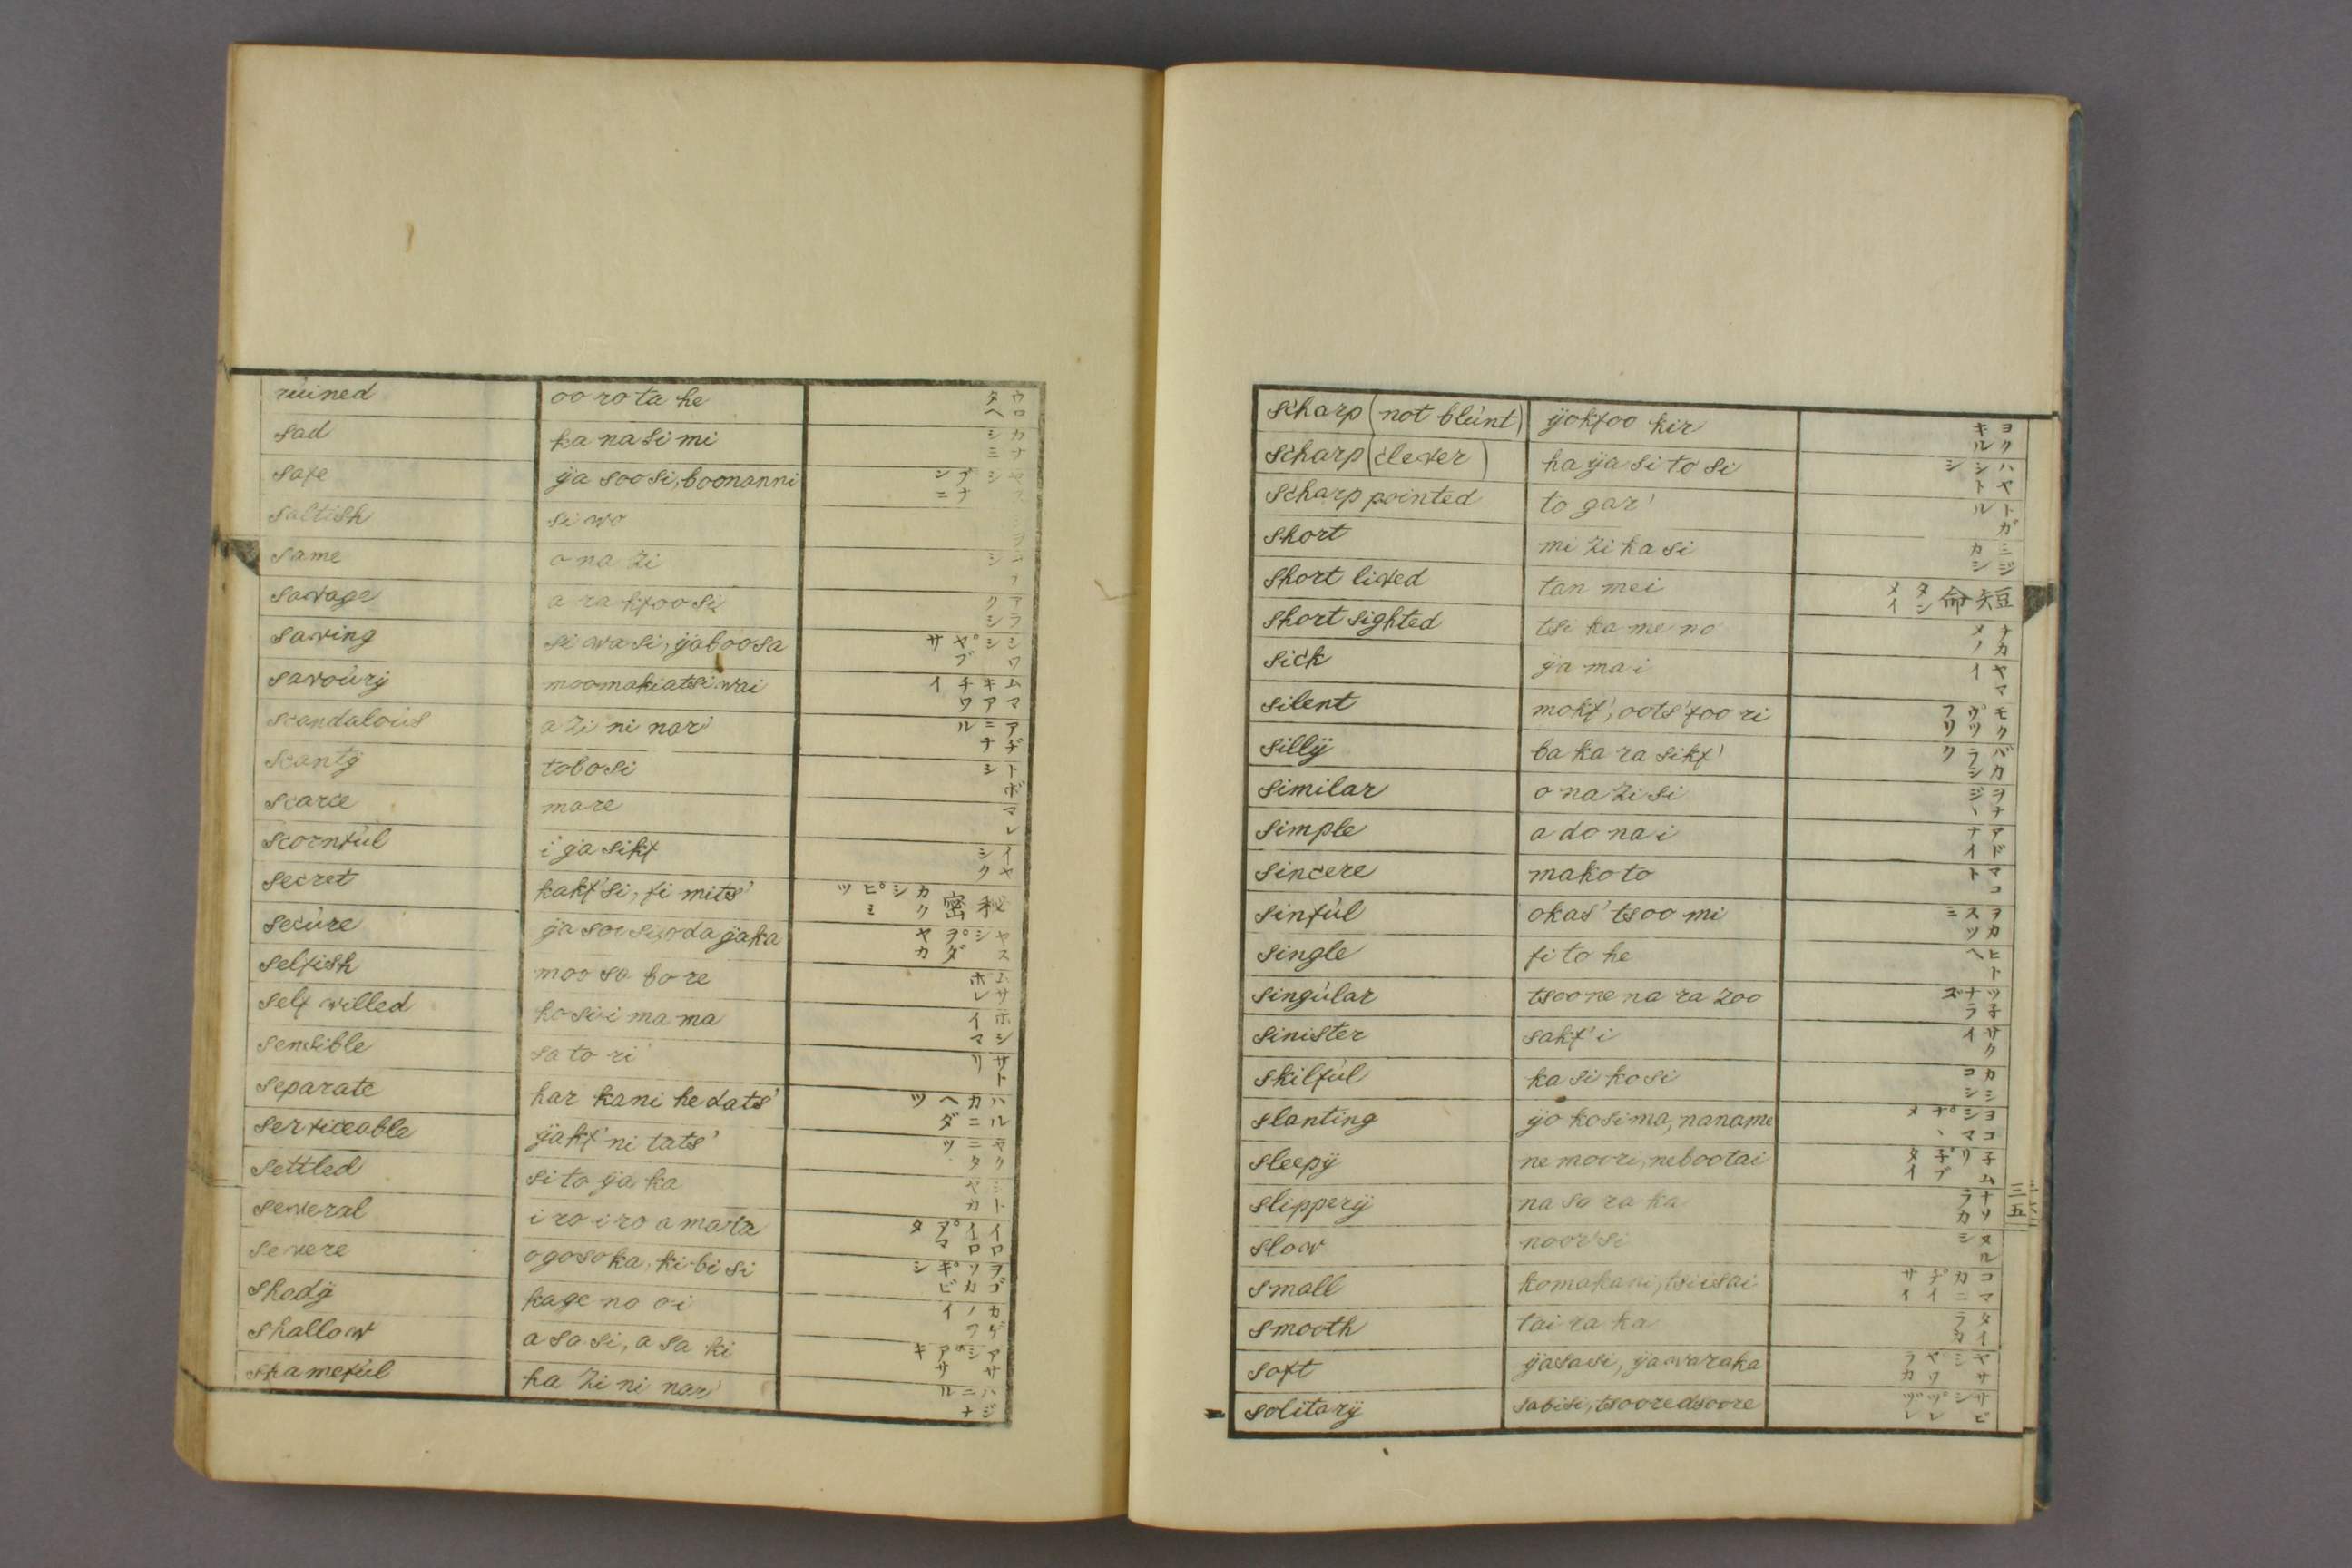 rúined oo ro ta he ウロタヘ
sad ka na si mi カナシミ
safe ÿa soo si, boonanni ヤスシブナンニ
saltish si wo シヲ
same o na zi
savage a ra kfoo si アラクシ
saving si wa si, ÿaboosa シワシヤブサ
savoúrÿ moomakiatsi wai ムマキアチワイ
scandaloús a zi ni nar' アヂニナル
scantÿ tobosi トボシ
scarce mare マレ
scornfúl i ÿa sikf イヤシク
secret kakf'si, fi mits' 秘密 カクシヒミツ
secúre ÿa soo si, oda ÿaka ヤスシヲダヤカ
selfish moo sa bo re ムサボレ
self willed ho si i ma ma ホシイマ
sensible sa to ri サトリ
separate har kani he dats' ハルカニヘダツ
serviceable ÿakf' ni tats' ヤクニタツ
settled si to ÿa ka シトヤカ
several i ro i ro a mata イロイロアマタ
severe ogosoka, ki bi si ヲゴソカキビシ
shadÿ kage no oi カゲノヲイ
shallow a sa si, a sa ki アサシアサキ
shamefúl ha zi ni nar' ハジニナル
scharp (not blúnt) ÿokfoo kir ヨクキル
scharp (clever) ha ÿa si to si ハヤシトシ
scharp pointed to gar' トガル
short mi zi ka si ミジカシ
short lived tan mei 短命 タンメイ
short sighted tsi ka me no チカメノ
sick ÿa ma i ヤマイ
silent mokf', oots'foo ri モクウツフリ
sillÿ ba ka ra sikf' バカラシク
similar o na zi si ヲナジ丶
simple a do na i アドナイ
sincere makoto マコト
sinfúl okas' tsoo mi ヲカスツミ
single fi to he ヒトヘ
singúlar tsoo ne na ra zoo ツ子ナラズ
sinister sakf' i サクイ
skilfúl ka si ko si カシコシ
slanting ÿo kosima, naname ヨコシマナ丶メ
sleepÿ ne moori, nebootai 子ムリ子ブタイ
slipperÿ na so ra ka ナソラカ
slow noor' si ヌルシ
small komakani, tsiisai コマカニチイサイ
smooth tai ra ka タイラカ
soft ÿasasi, ÿawaraka ヤサシヤワラカ
solitarÿ sabisi, tsooredsoore サビシツレヅレ
三五